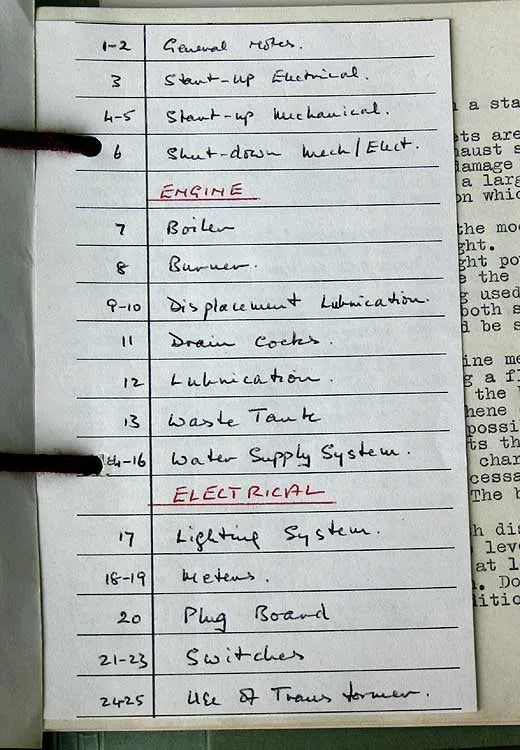 1-2 General Notes.
3 Start-up Electrical.
4-5 Start-up Mechanical.
6 Shut-down Mech/Elect.
ENGINE
7 Boiler
8 Burner.
9-10 Displacement Lubrication.
11 Drain Cocks.
12 Lubrication.
13 Waste Tank
14-16 Water Supply System.
ELECTRICAL
17 Lighting System.
18-19 Meters.
20 Plug Board
21-23 Switches
24-25 Use of Transformer.
n a sta
ets are
haust s
damage
a larg
on whic
the mo
ght.
ght po
e the
g used
both s
d be s
ine me
g a fl
the
hene
possi
ts th
char
cessa
The b
h dis
leve
at l
. Do
itio